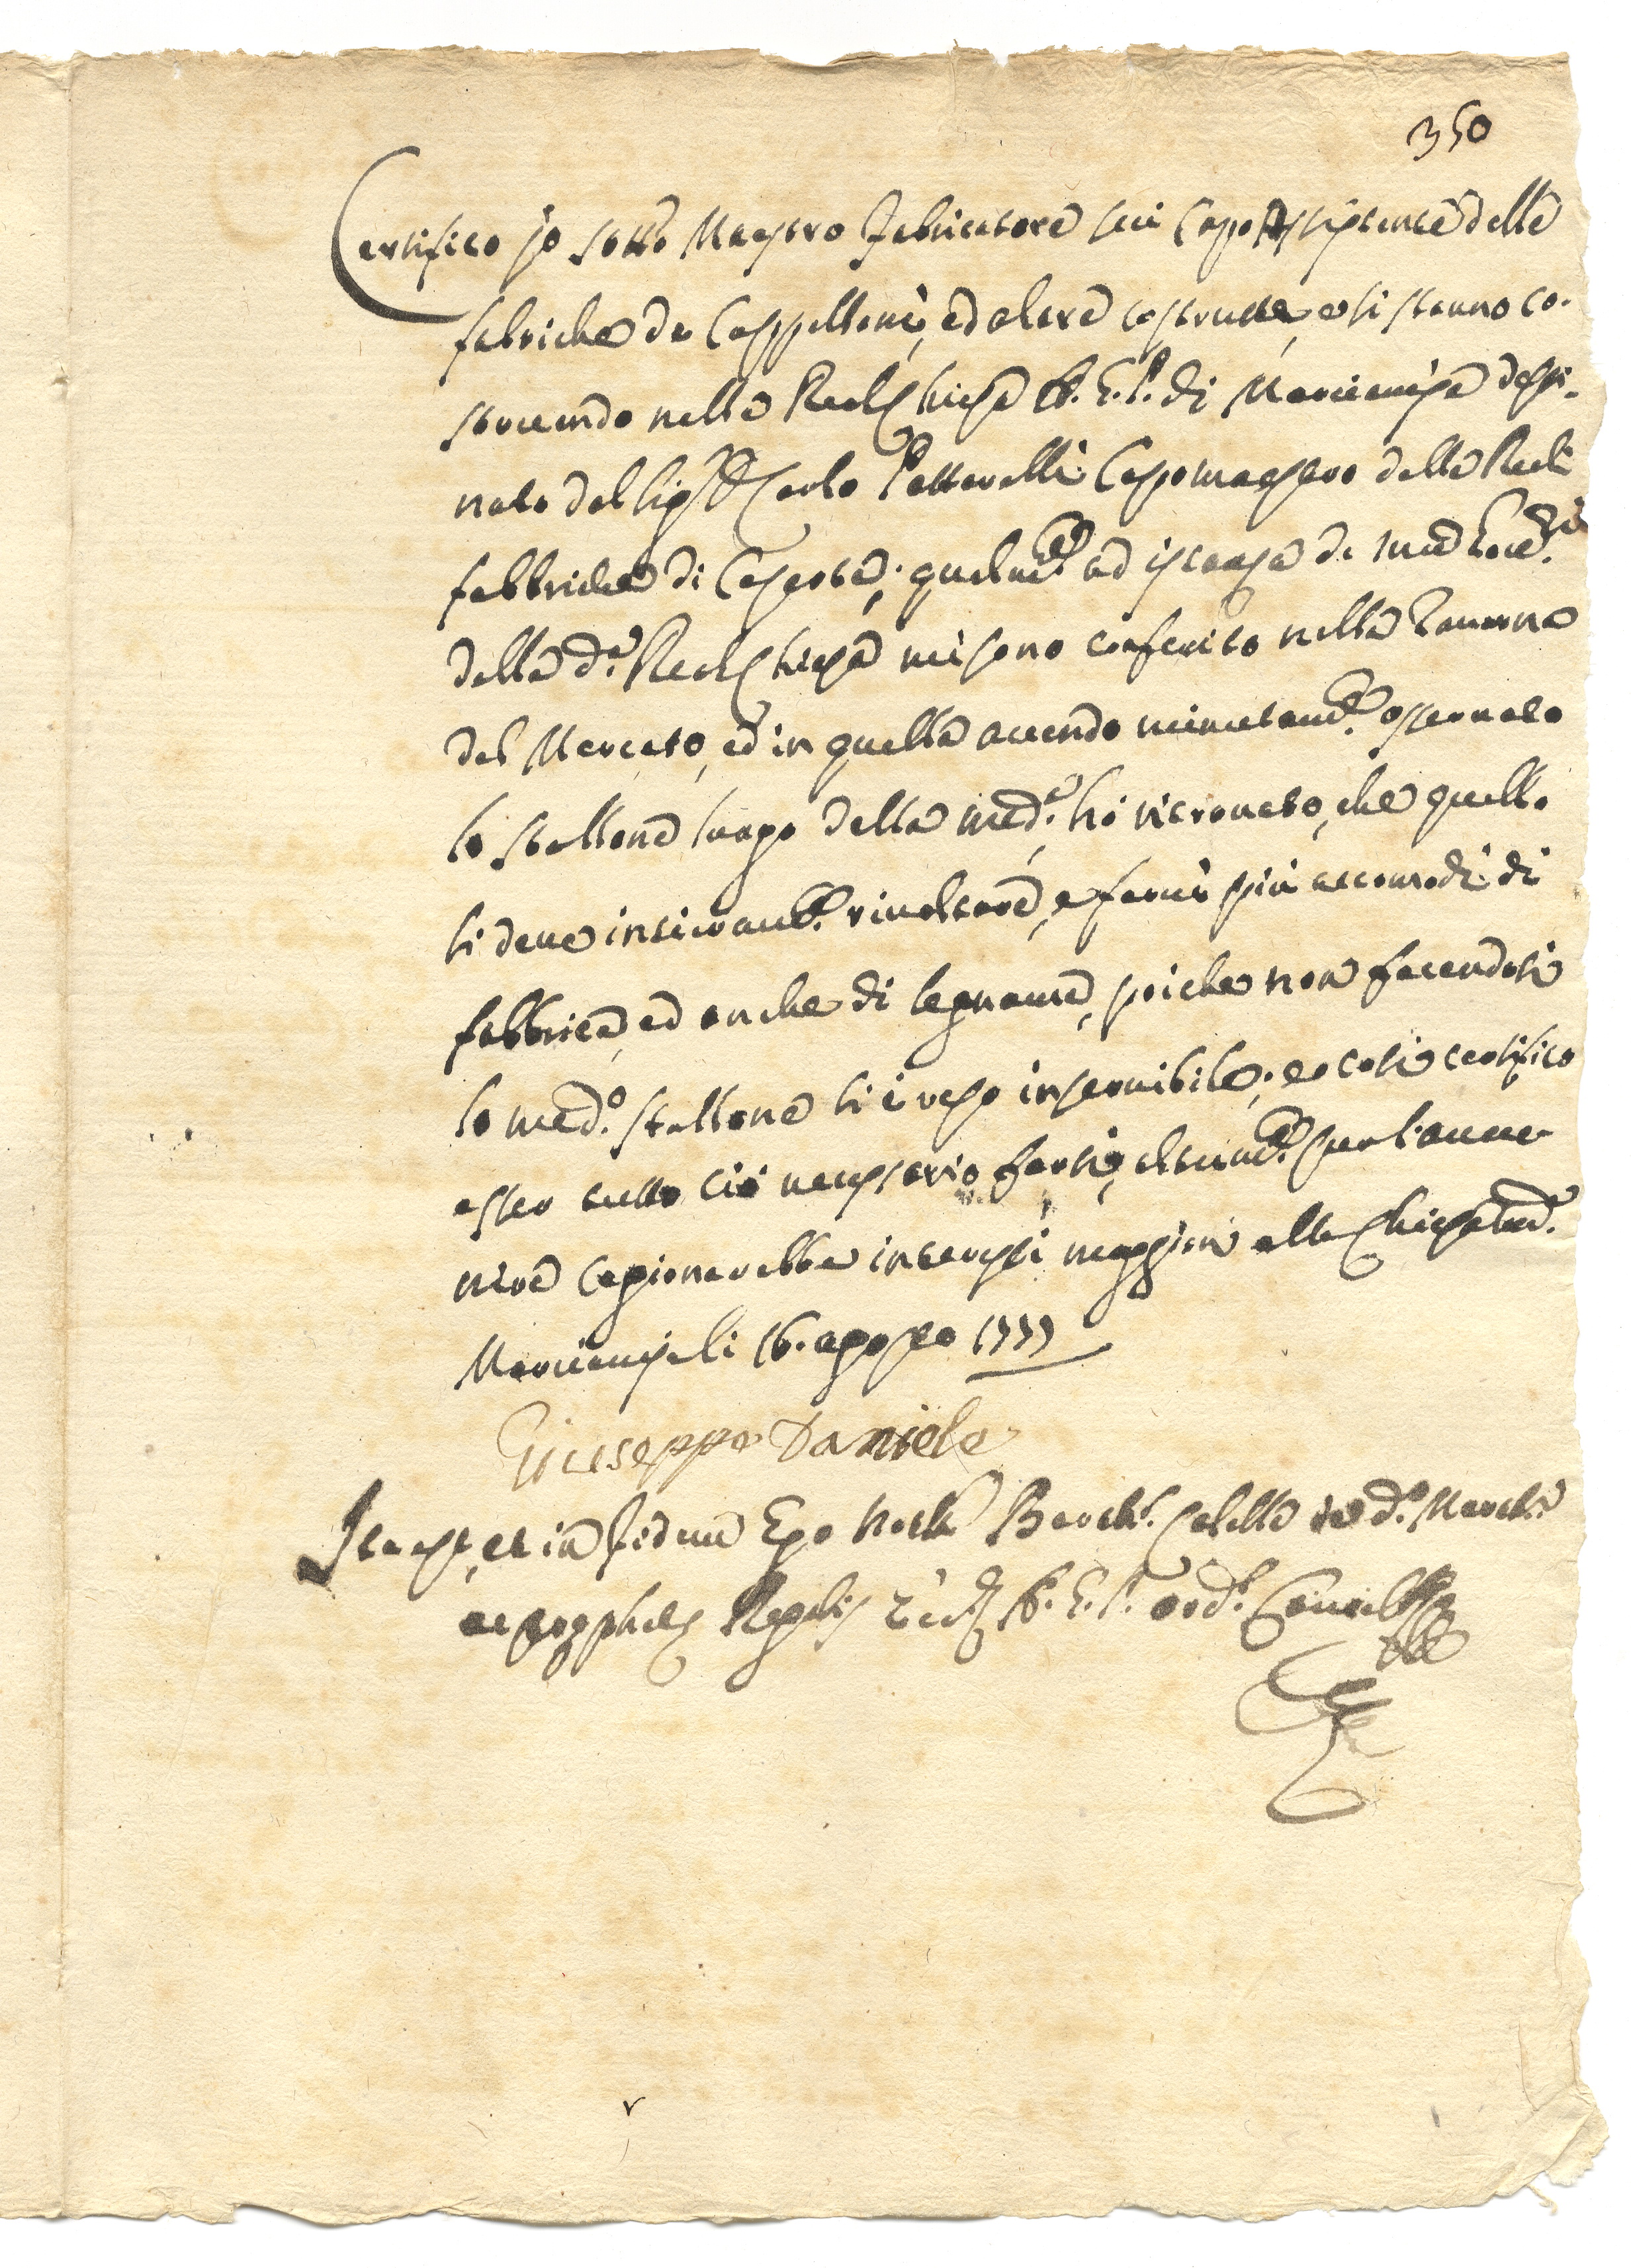 350
Certifico io sotto Mastro Fabricatore seu Capo Assistente delle
fabriche de Cappelloni, ed altre costrutte, e si stanno co-
struendo nella Real Chiesa A. G. P. di Marcianise desti-
nato dal Sig. D. Carlo Patturelli Capomastro delle Reali
fabbriche di Caserta; qualm.te ad istanza de
della d.a Real Chiesa mi sono conferito nella Taverna
del Mercato, ed in quella avendo minutam.te osservato
lo stallone lungo della med.a hò ritrovato, che quello
si deve intieram.te rivoltare, e farvi più accomodi di
fabbrica, ed anche di legname, poiche non facendosi
lo med.o stallone si è reso inservibile; e così certifico
esser tutto ciò necessario farsi, altrim.te per l'avve-
nire cagionarebbe interessi maggiori alla Chiesa med.a
Marcianise li 16. agosto 1777
Giuseppe Daniele
Ita est, et in fidem Ego Not.r de d.o
Regalis A. G. P.